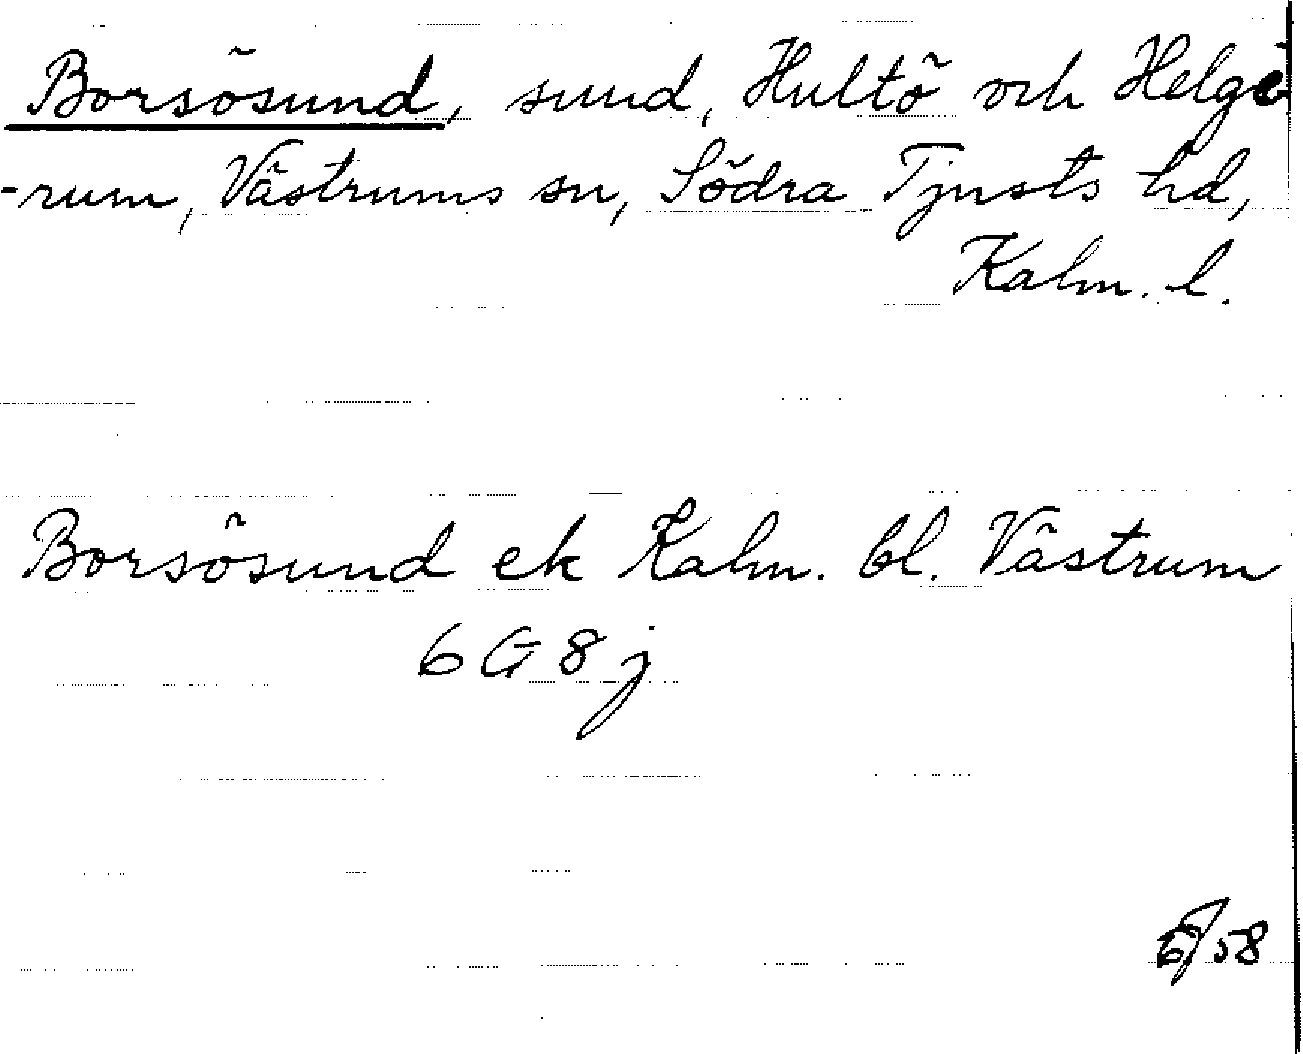 Borsösund, sund, Hultö och Helge
-rum, Västrums sn, Södra Tjusts hd,
Kalm. l.
Borsösund ek Kalm. bl. Västrum
6 G 8 j
58